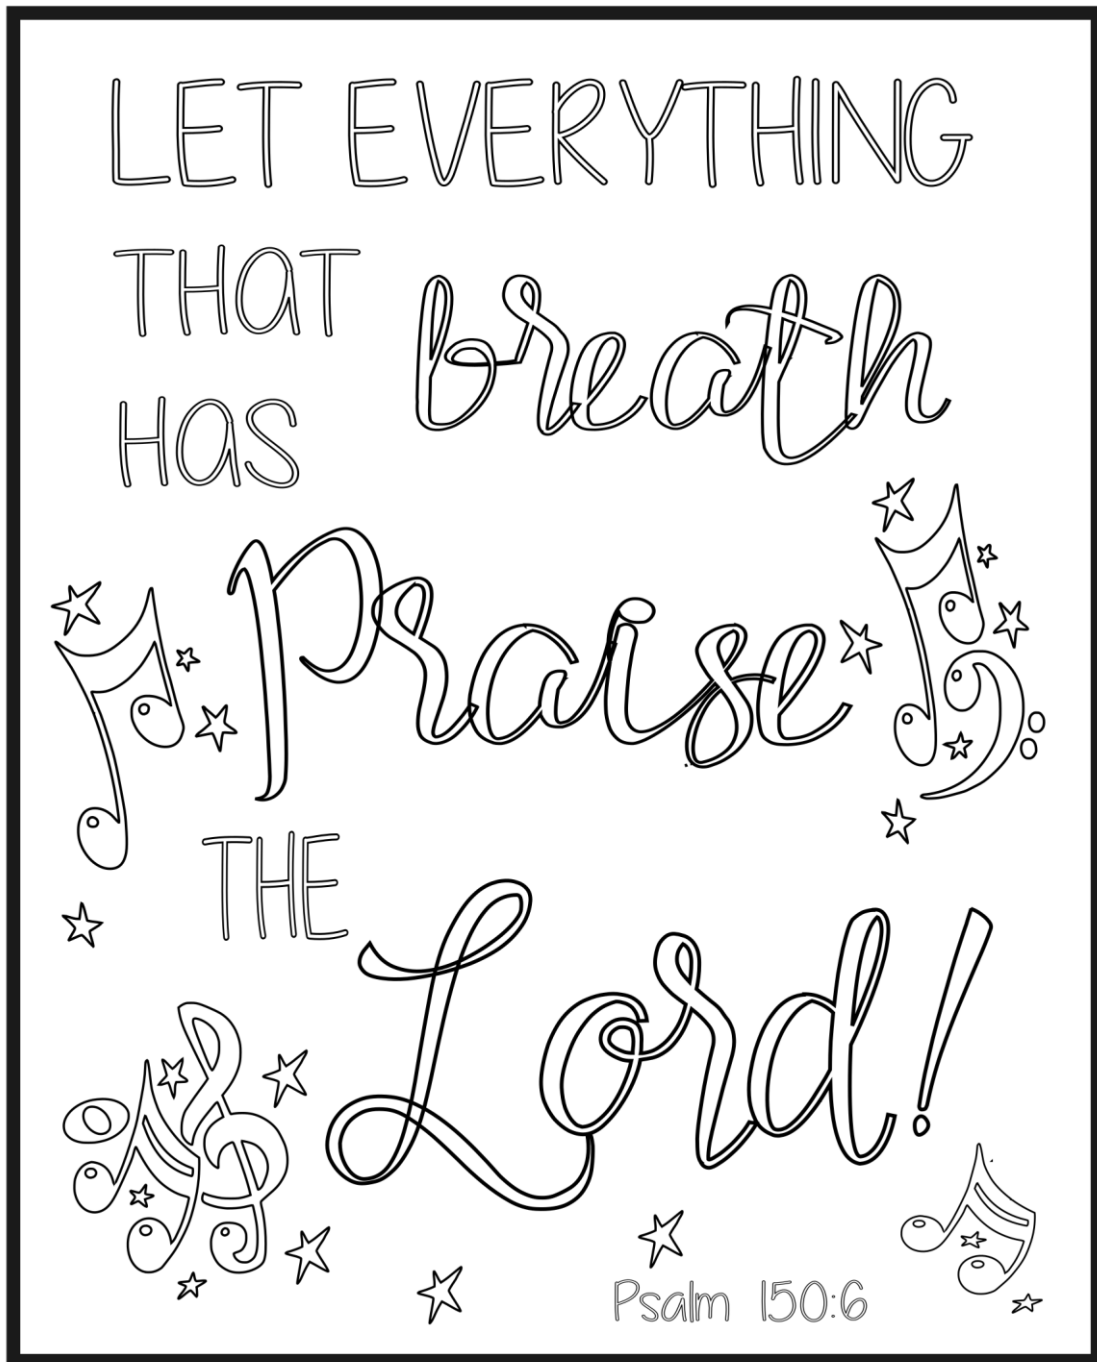 LET EVERYTHING
THaT breath
Has
Praise
THE
Lord!
Psalm 150:6